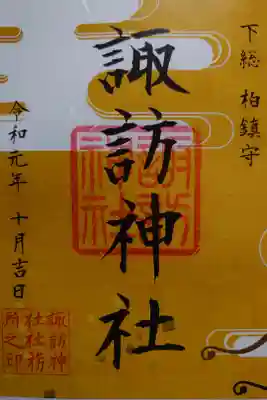 下総 柏鎮守
諏訪神社
令和元年 十月吉日
諏訪神社
諏訪神
社社務
所之印